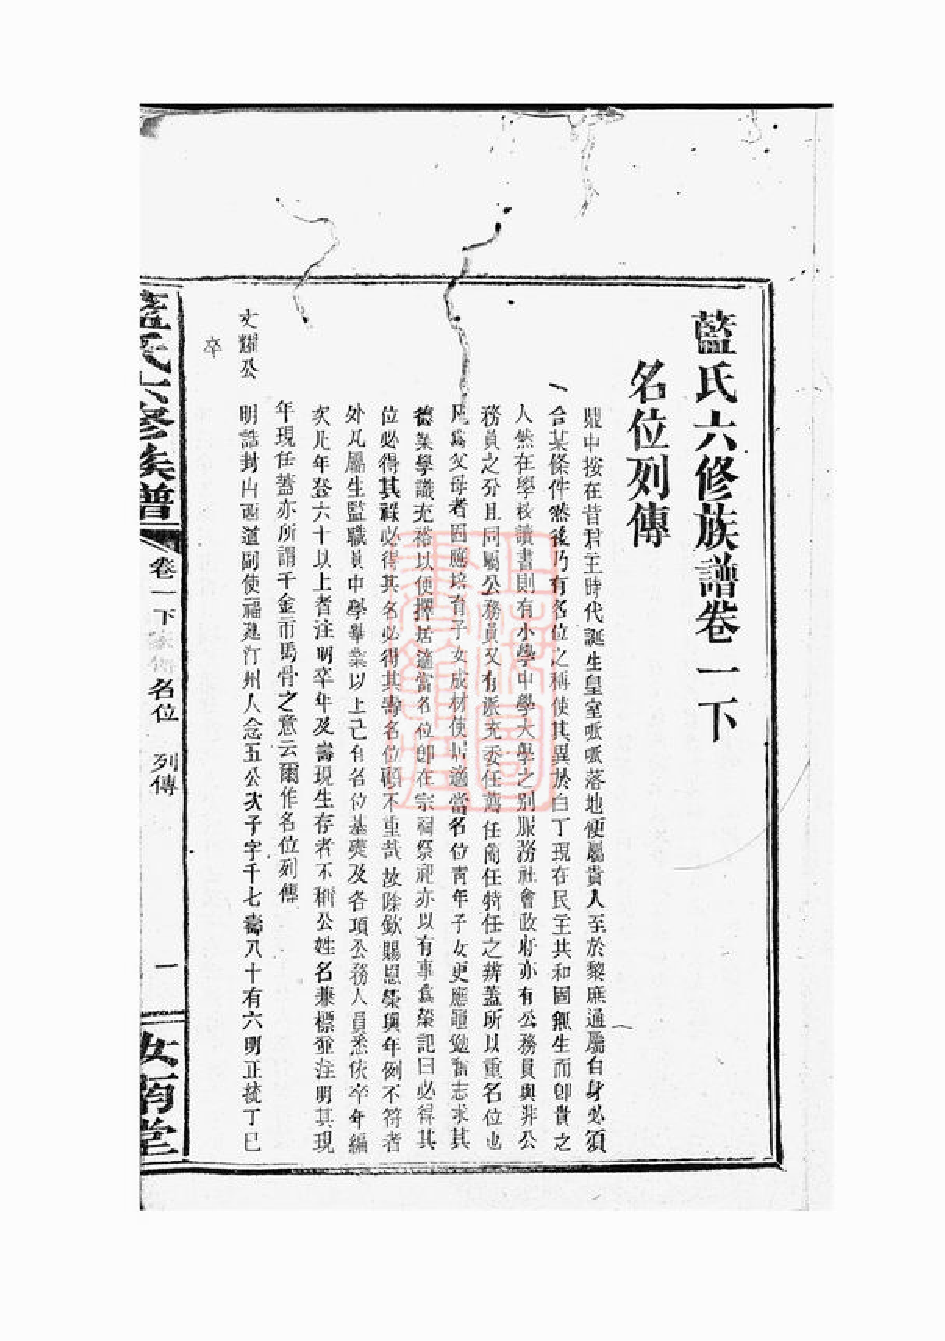 藍氏六修族譜卷一下
名位列傳
鼎中按在昔君主時代誕生皇室呱呱落地便屬貴人至於黎庶通屬白身必須
合某條件然後乃有名位之稱使其異於白丁現在民主共和國無生而即貴之
人然在學校讀書則有小學中學大學之別服務社會政府亦有公務員與非公
務員之分且同屬公務員又有派充委任薦任簡任特任之辨蓋所以重名位也
凡為父母者固應培育子女成材使居適當名位青年子女更應黽勉奮志求其
德業學識充裕以便擇居適當名位即在宗祠祭祀亦以有事為榮記曰必得其
位必得其祿必得其名必得其壽名位顧不重哉故除欽賜恩榮與年例不符者
外凡屬生監職員中學畢業以上已有名位基礎及各項公務人員悉依卒年編
次凡年登六十以上者注明卒年及壽現生存者不稱公姓名兼標並注明其現
年現任蓋亦所謂千金市馬骨之意云爾作名位列傳
文耀公 明誥封山西道副使福建汀州人念五公次子字千七壽八十有六明正統丁巳
卒
藍氏六修族譜 卷一下 名位 列傳 一 汝南堂